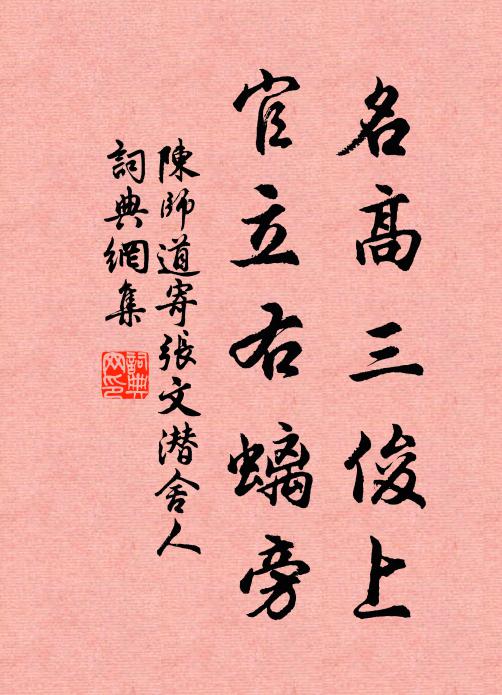 名高三俊上
官立右螭旁
陳師道寄張文潛舍人
詞典網集
詞典網印